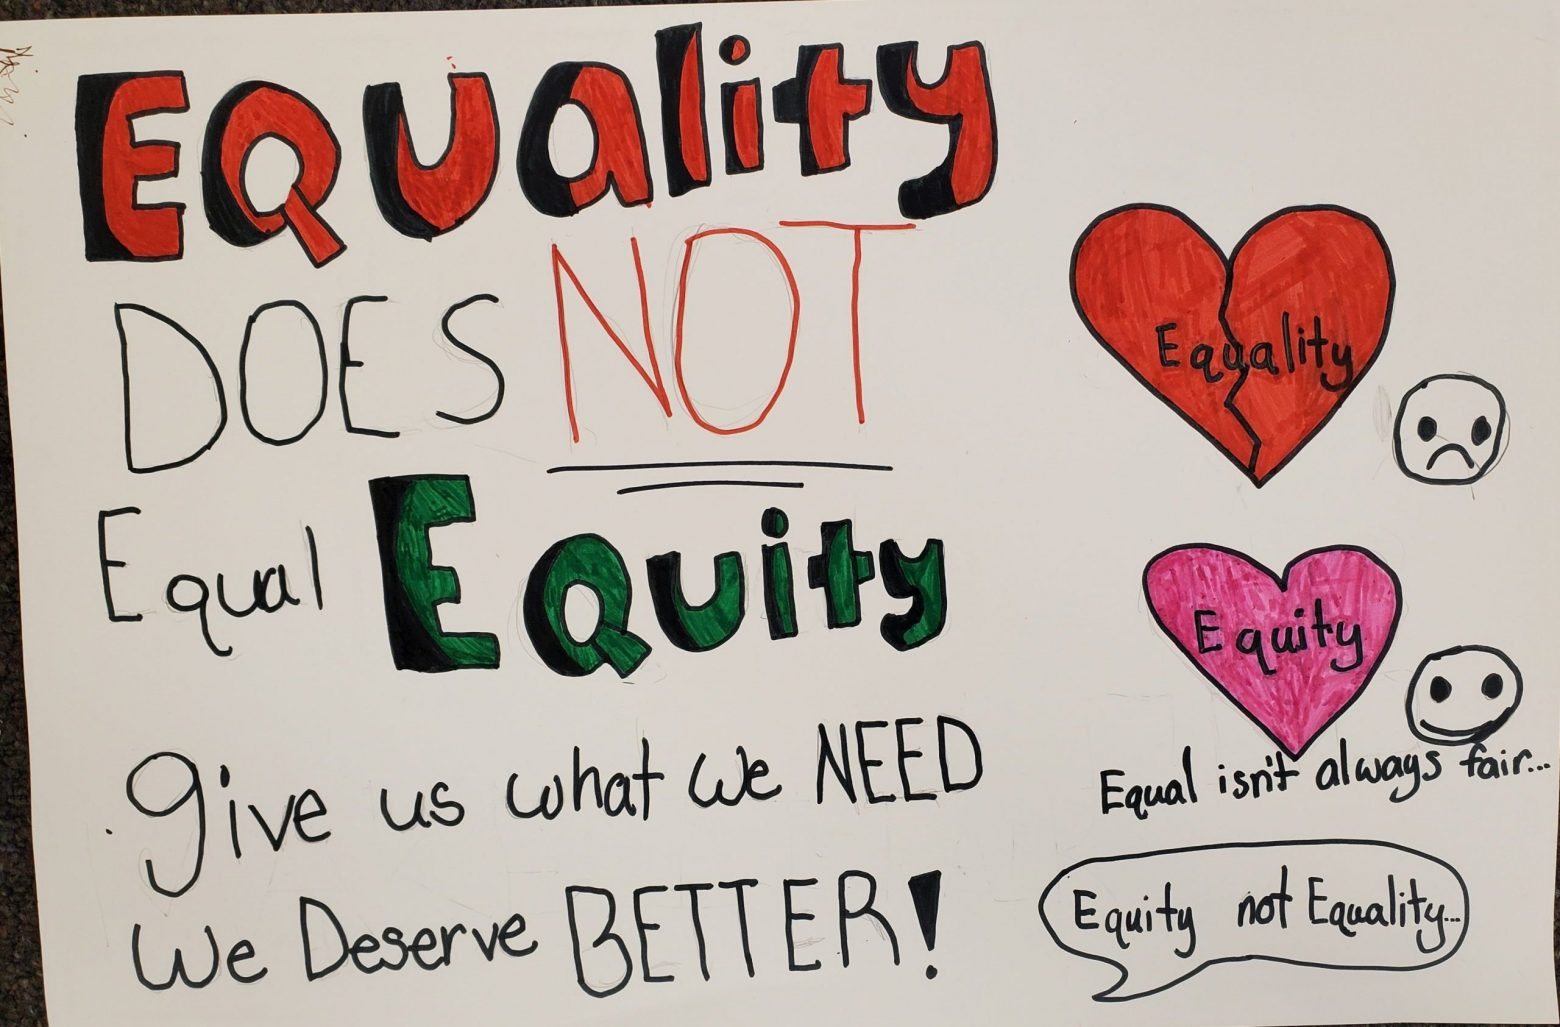 EQUality
DOES NOT
Equal EQuity
give us what we NEED
We Deserve BETTER!
Equality
Equity
Equal isn't always fair...
Equity not Equality...